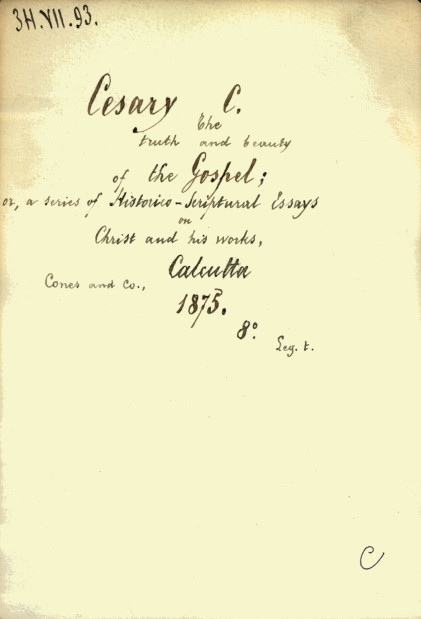 3H.VII.93.
Cesary C.
the
truth and beauty
of the Gospel;
or, a series of Historico-Scriptural Essays
on
Christ and his works,
Calcutta
Cones and co.,
1875.
8°.
Leg. t.
C